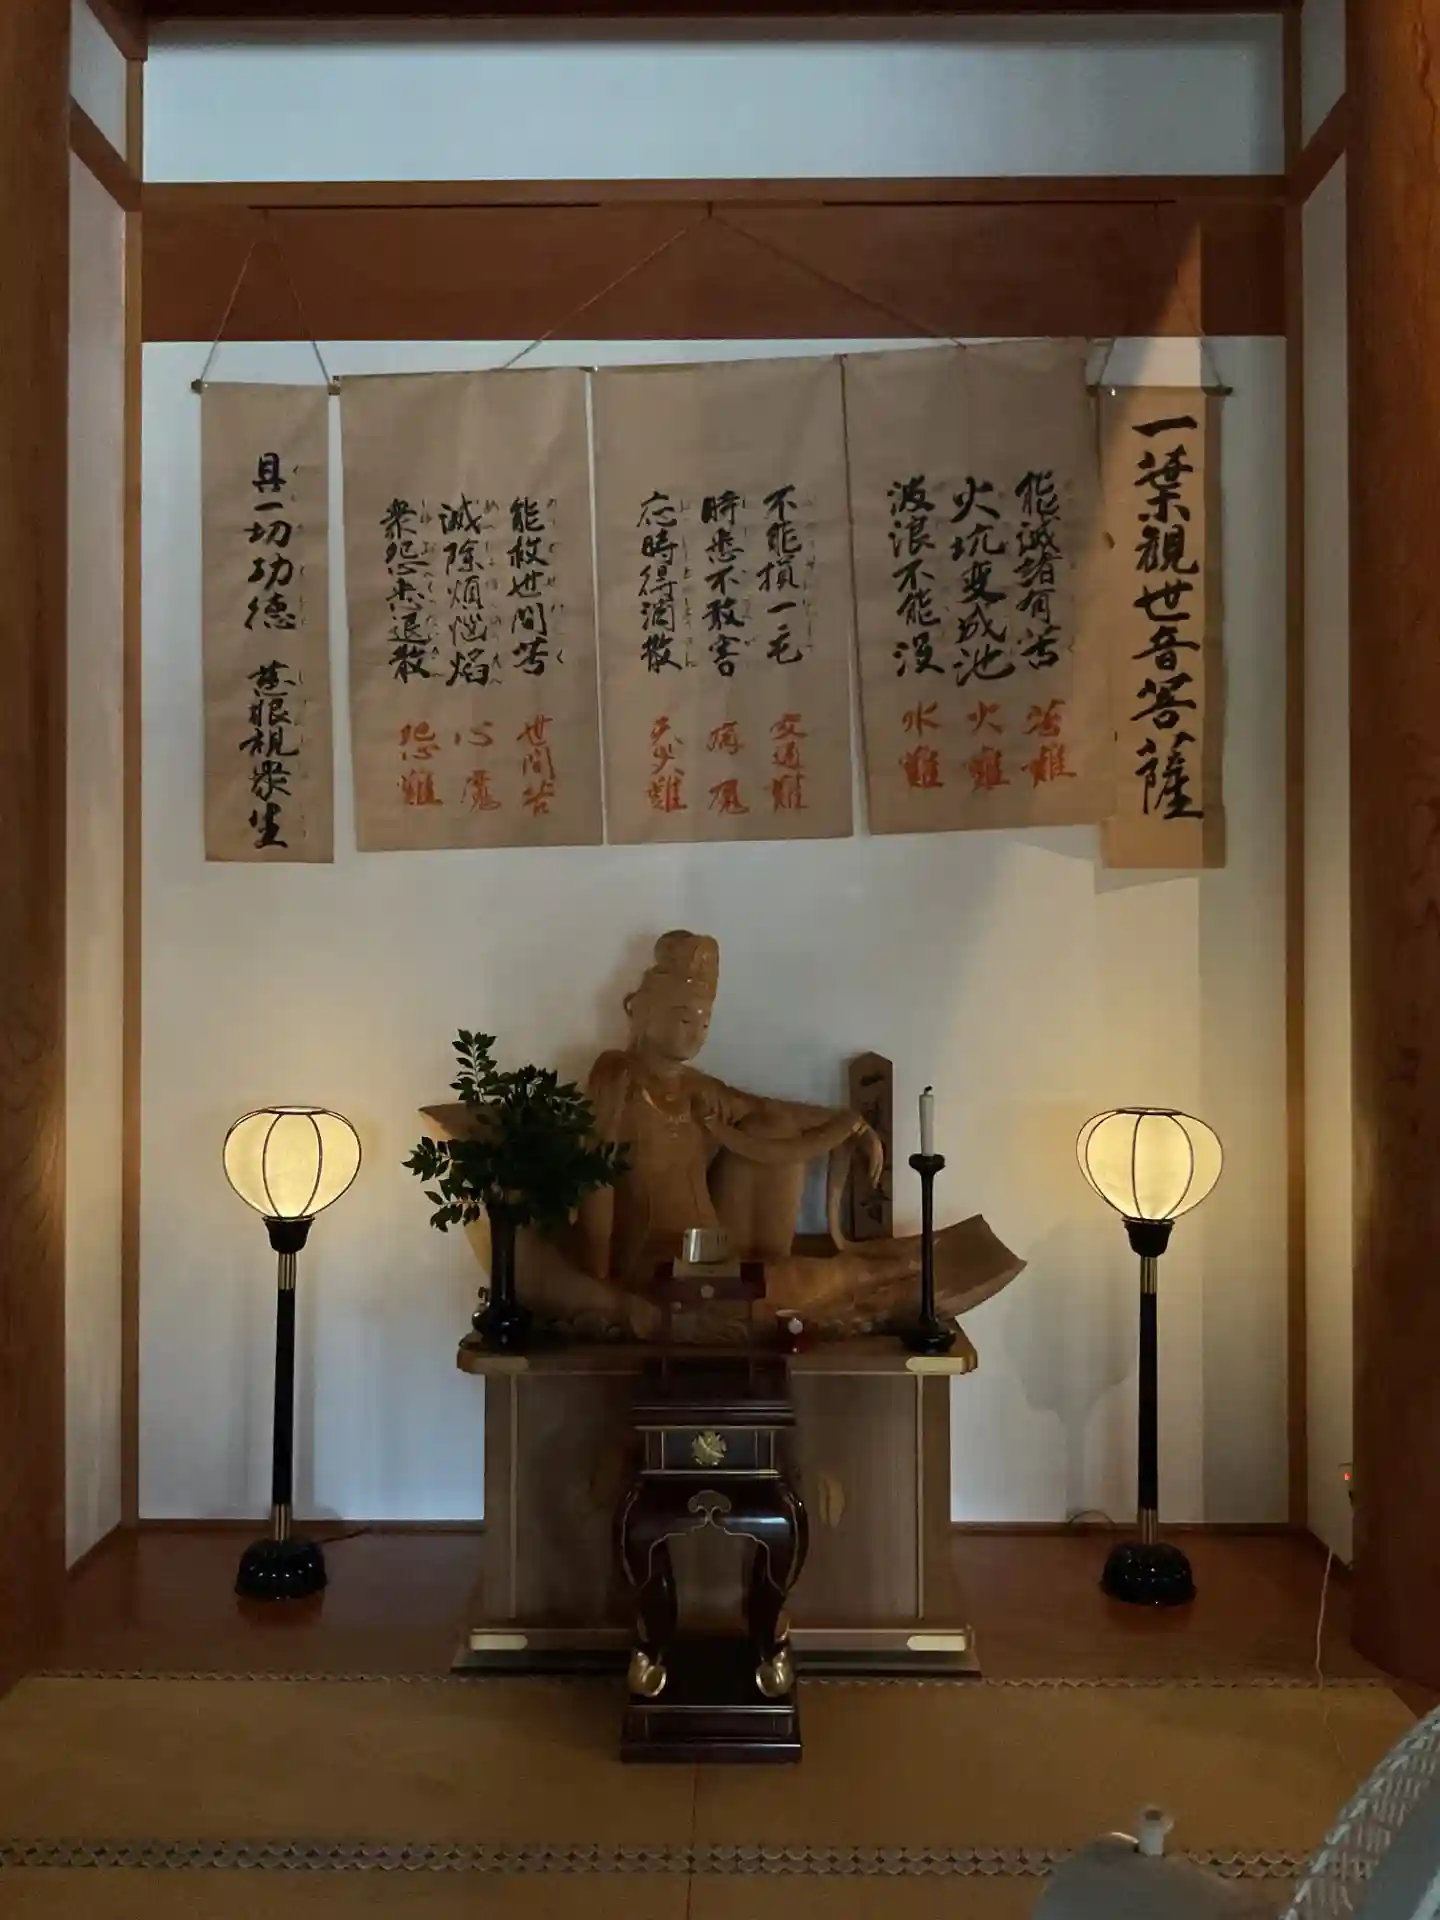 一葉観世音菩薩
能滅諸有苦
苦難
火坑変成池
火難
波浪不能没
水難
不能損一毛
交通難
時悉不敢害
病魔
応時得消散
天災難
能救世間苦
世間苦
滅除煩悩焰
心魔
衆怨悉退散
怨難
具一切功徳 慈眼視衆生